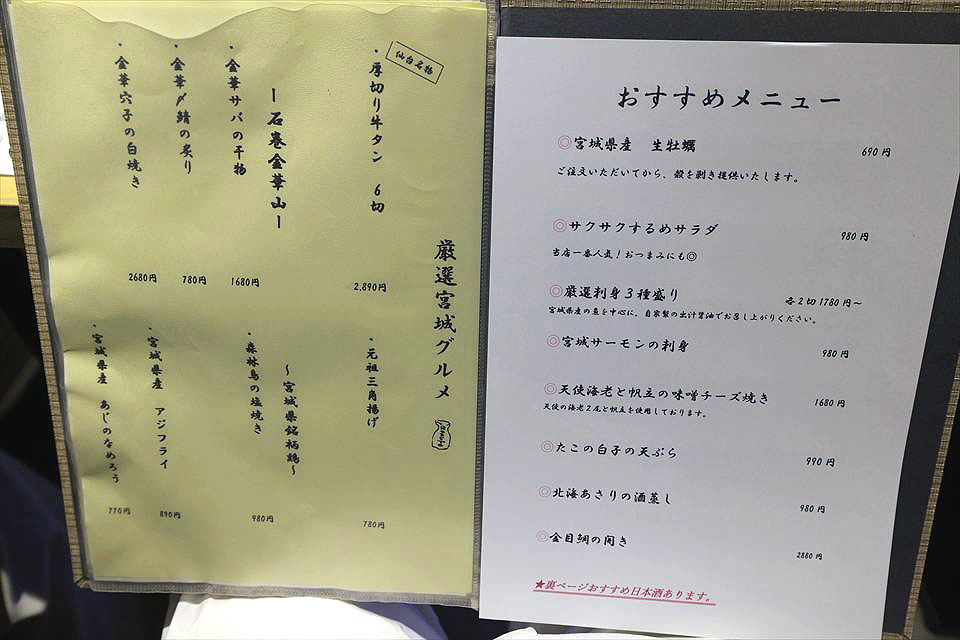 厳選宮城グルメ
仙台名物
・厚切り牛タン 6切
2,890円
ー石巻金華山ー
・金華サバの干物
1680円
・金華〆鯖の炙り
780円
・金華穴子の白焼き
2680円
・元祖三角揚げ
780円
〜宮城県銘柄鶏〜
・森林鳥の塩焼き
980円
・宮城県産 アジフライ
890円
・宮城県産 あじのなめろう
770円
おすすめメニュー
◎宮城県産 生牡蠣 690円
ご注文いただいてから、殻を剥き提供いたします。
◎サクサクするめサラダ 980円
当店一番人気!おつまみにも◎
◎厳選刺身3種盛り 各2切1780円〜
宮城県産の魚を中心に、自家製の出汁醤油でお召し上がりください。
◎宮城サーモンの刺身 980円
◎天使海老と帆立の味噌チーズ焼き 1680円
天使の海老2尾と帆立を使用しております。
◎たこの白子の天ぷら 990円
◎北海あさりの酒蒸し 980円
◎金目鯛の開き 2880円
★裏ページおすすめ日本酒あります。